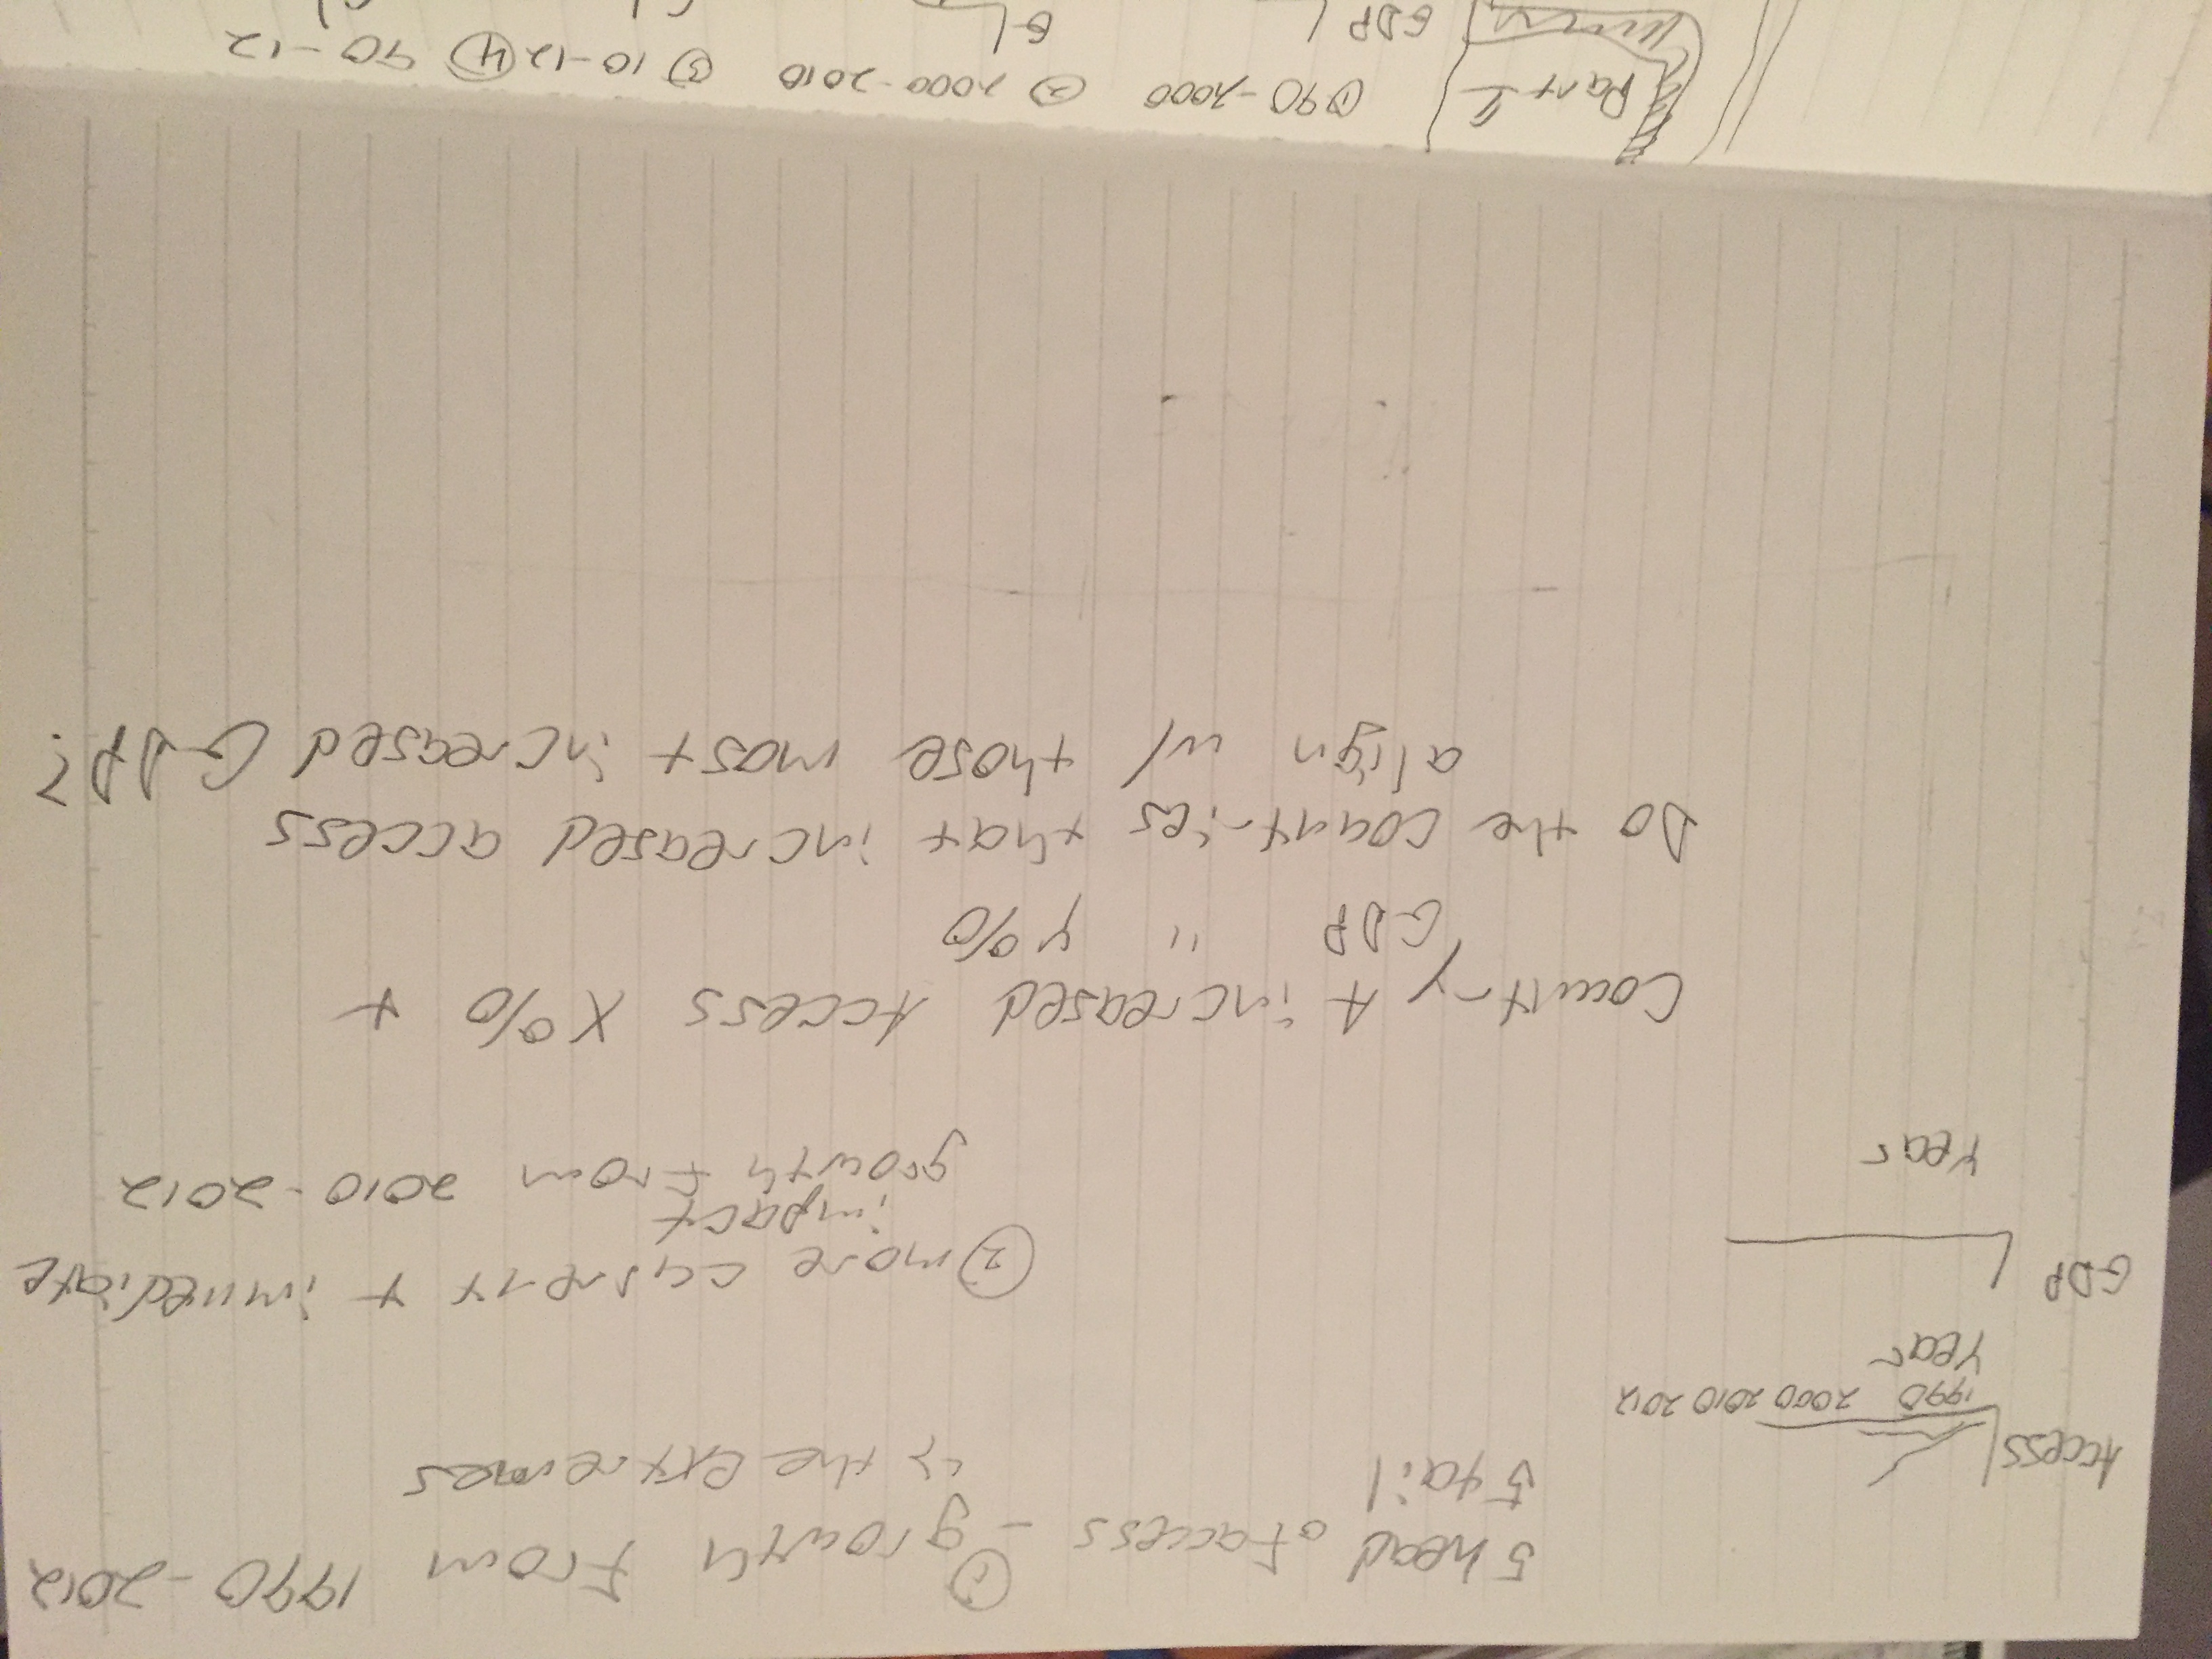 5 head of access - ① growth from 1990-2012
5 tail
↳ the extremes
Access
1990 2000 2010 2012
Year
GDP
Year
② more current + immediate
impact
growth from 2010-2012
Country A increased Access X% +
GDP " Y%
Do the countries that increased access
align w/ those most increased GDP?
Part 1 ① 90-2000 ② 2000-2010 ③ 10-12 ④ 90-12
GDP G